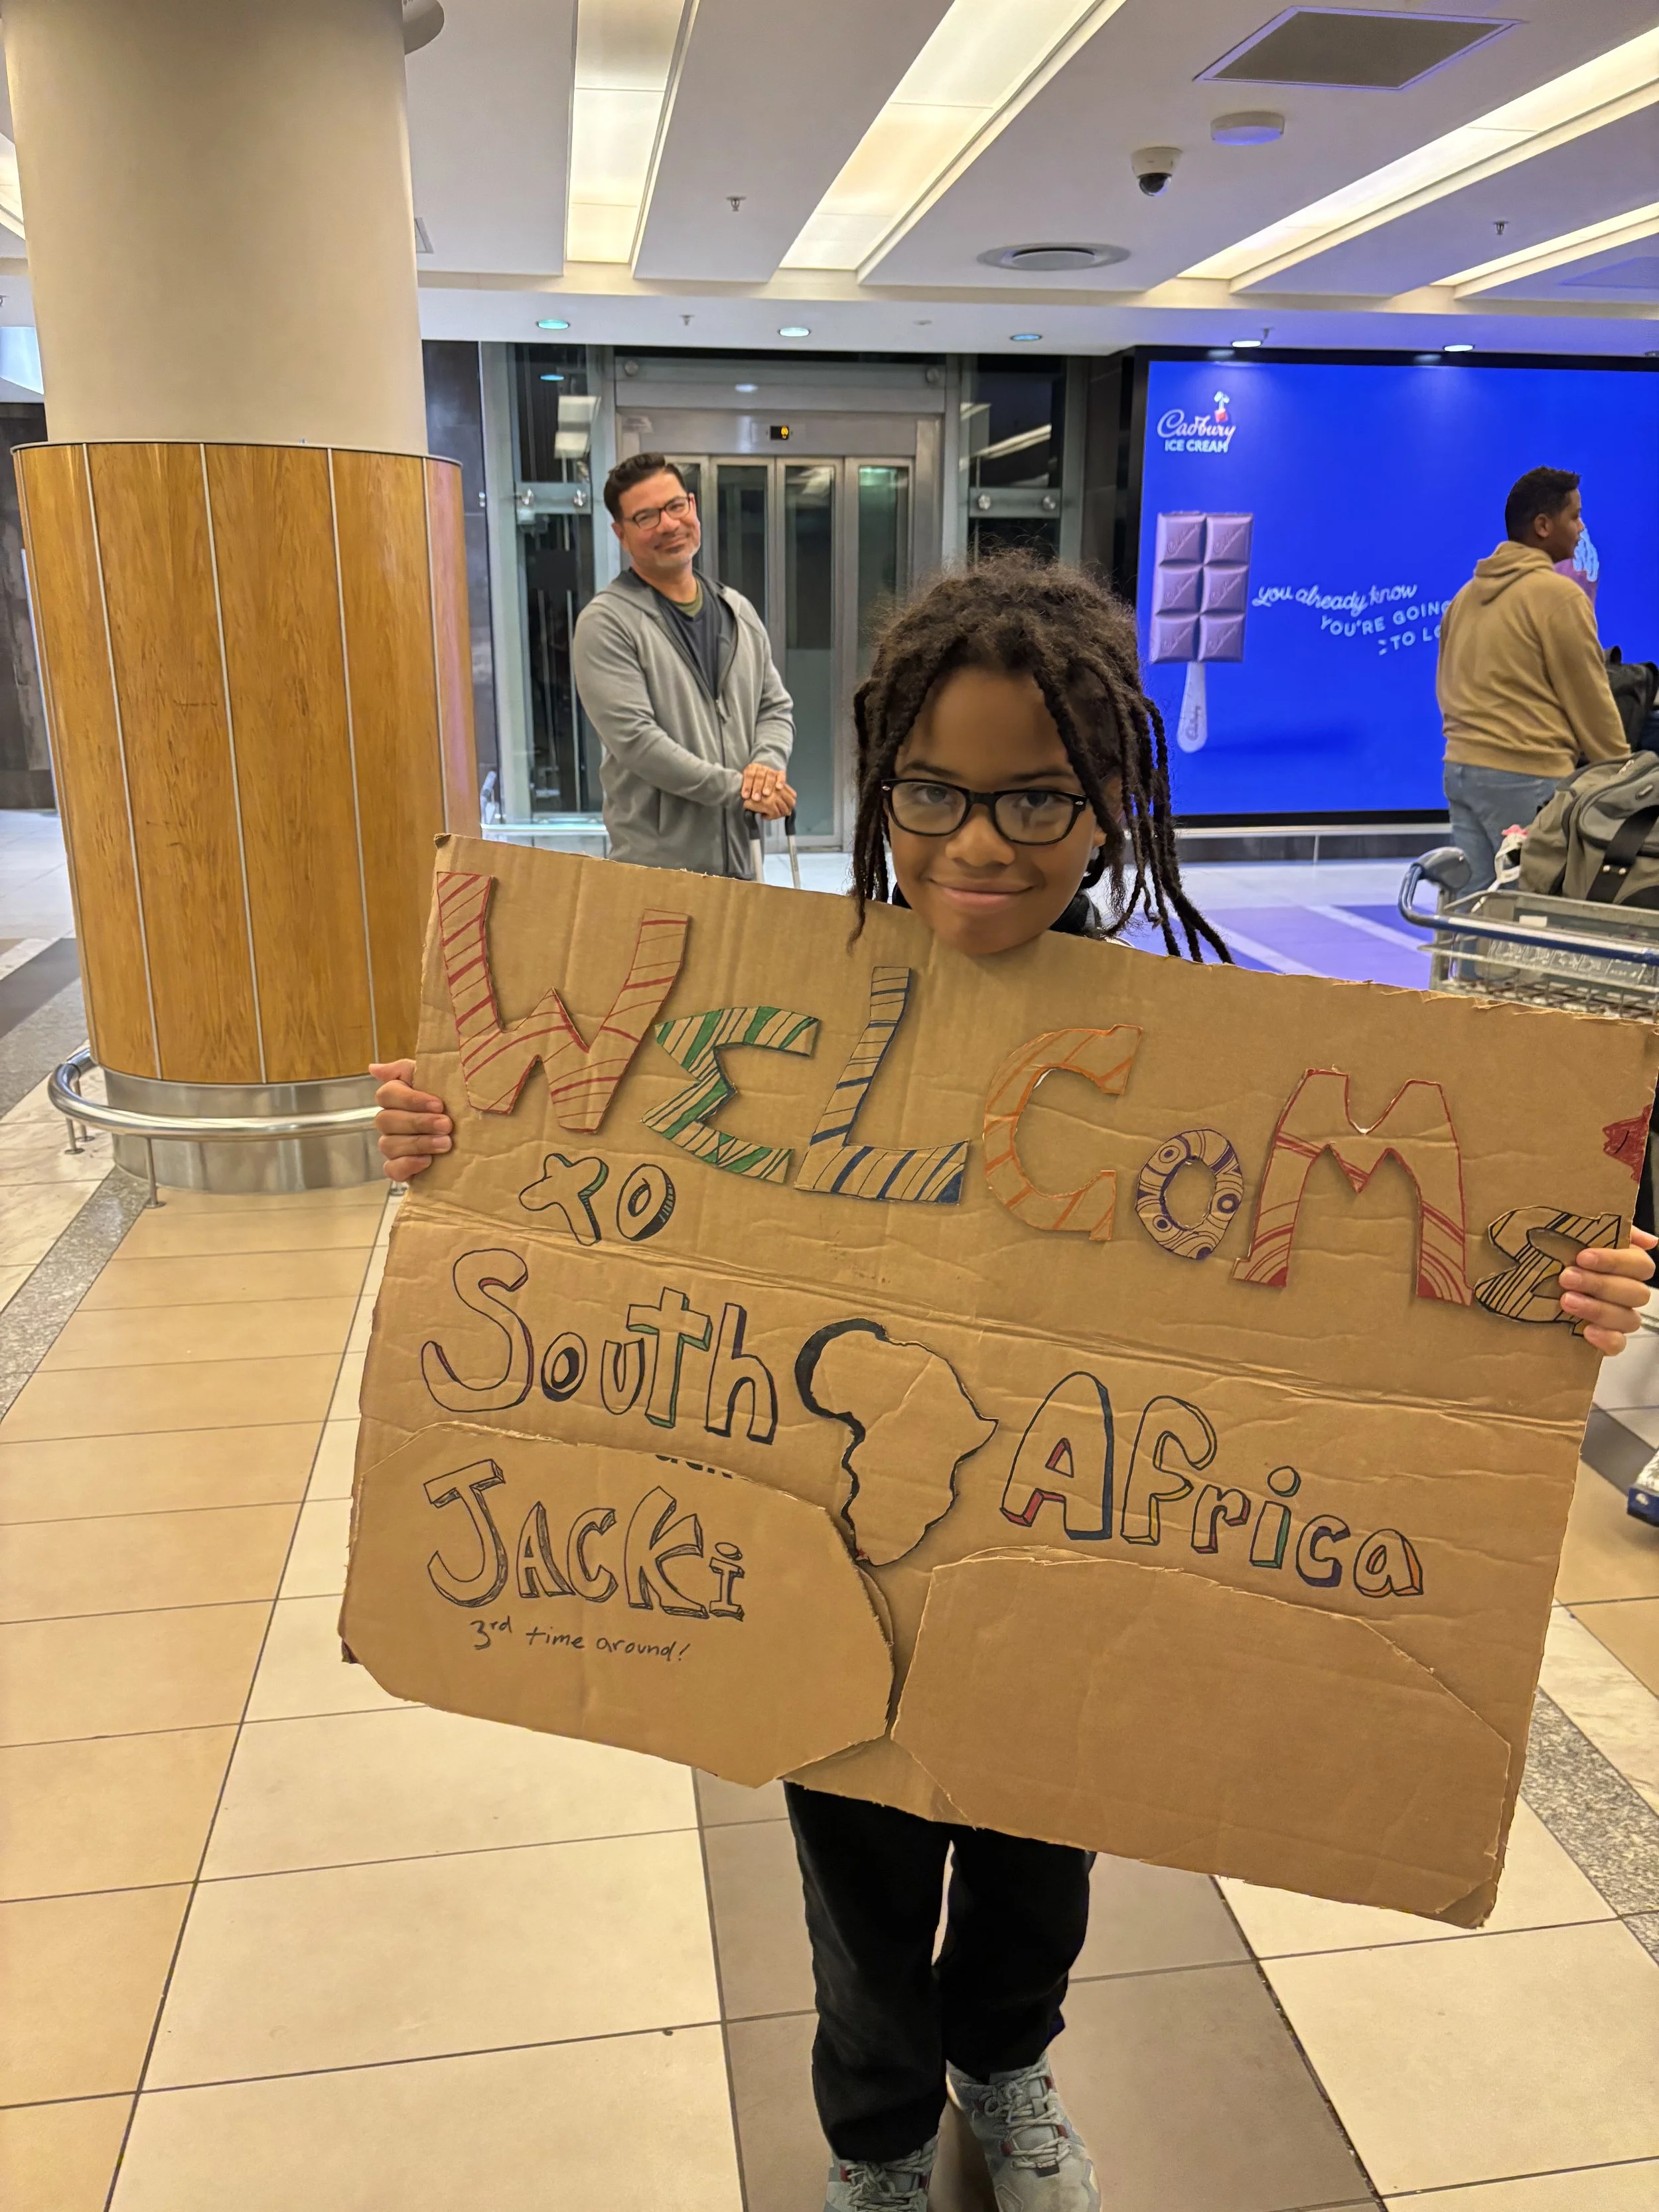 Cadbury
ICE CREAM
you already know
YOU'RE GOING
TO
WELCOME
TO
South Africa
JACKi
3rd time around!